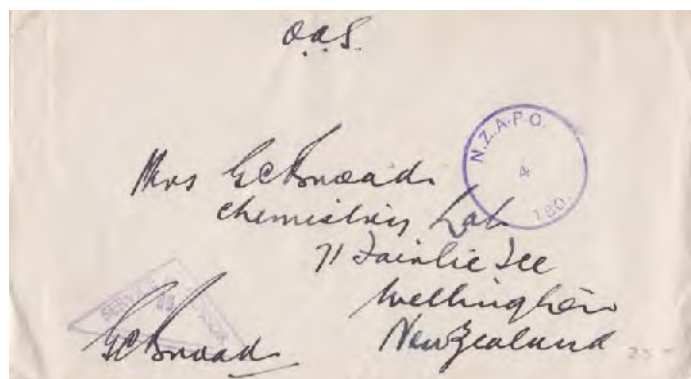 O.A.S.
N.Z.A.P.O.
4
180.
Mrs G C Broad
Chemistry Lab
71 Fairlie Tce
Wellington
New Zealand
GC Broad